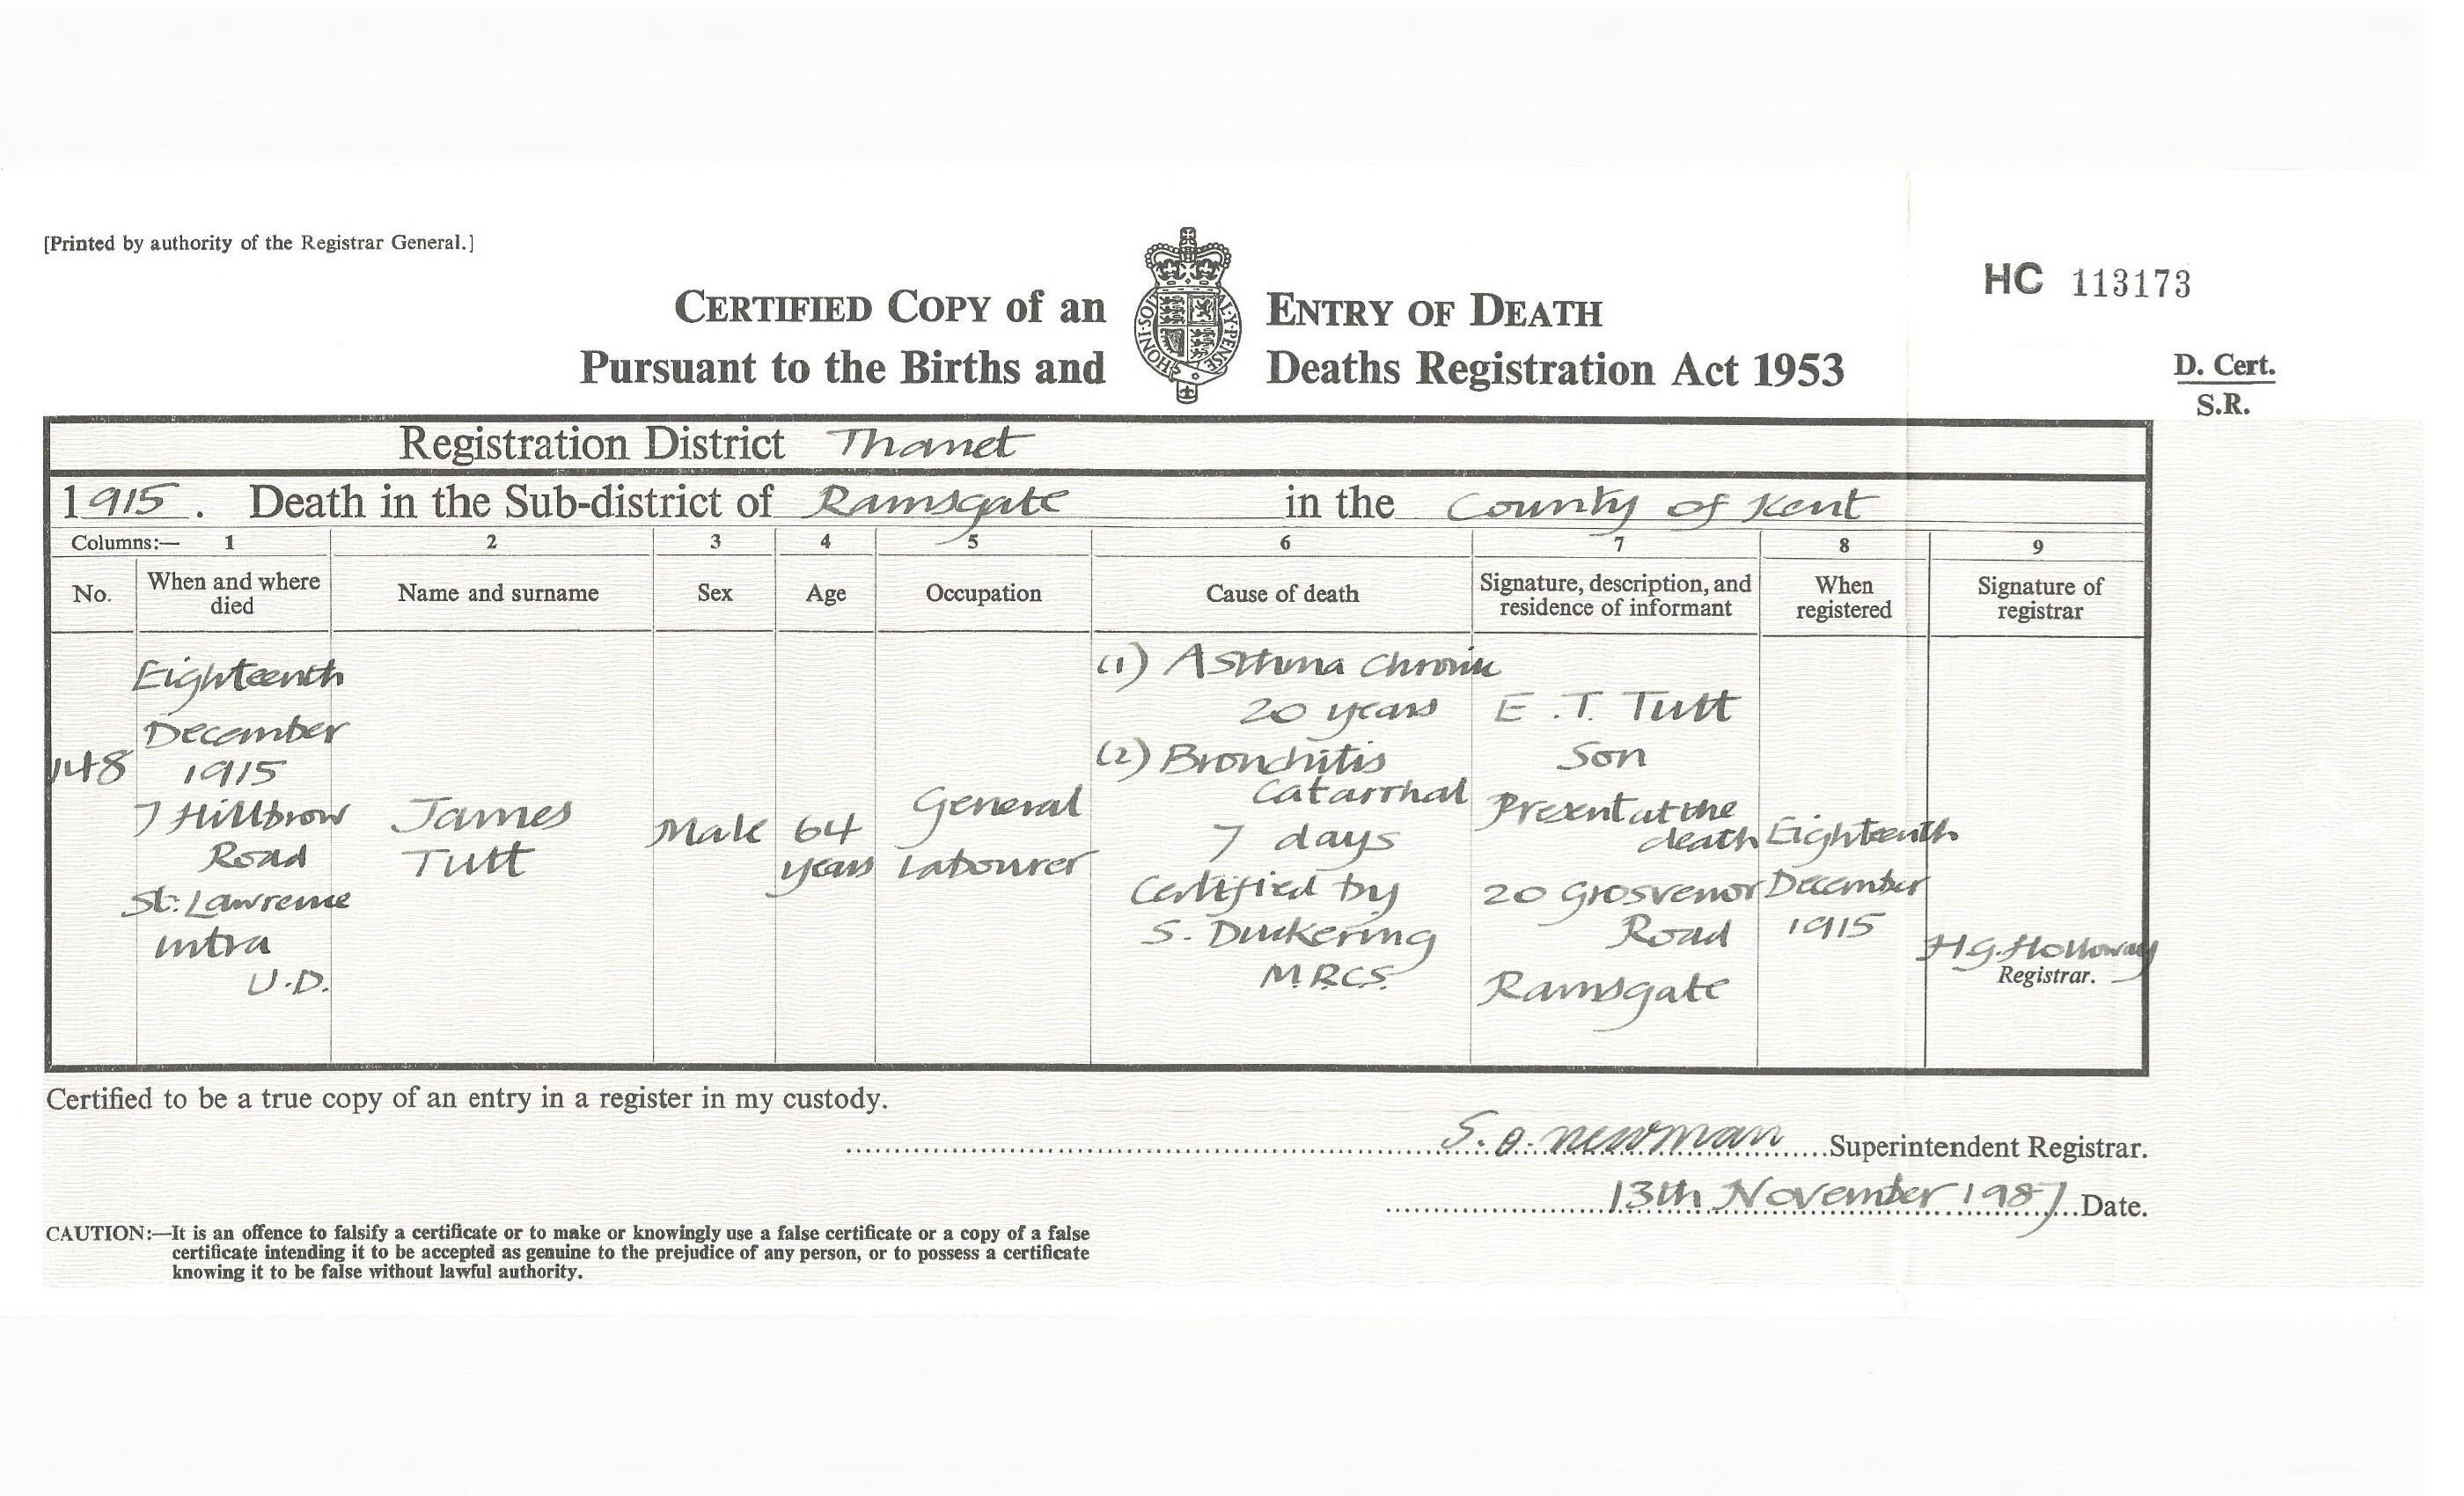 [Printed by authority of the Registrar General.]
HC 113173
CERTIFIED COPY of an ENTRY OF DEATH
Pursuant to the Births and Deaths Registration Act 1953
HONI·SOIT
MAL·Y·PENSE
D. Cert.
S.R.
Registration District Thanet
1915. Death in the Sub-district of Ramsgate in the County of Kent
Columns:— 1 2 3 4 5 6 7 8 9
No.
When and where
died
Name and surname
Sex
Age
Occupation
Cause of death
Signature, description, and
residence of informant
When
registered
Signature of
registrar
148
Eighteenth
December
1915
7 Hillbrow
Road
St. Lawrence
intra
U.D.
James
Tutt
Male
64
years
General
Labourer
(1) Asthma chronic
20 years
(2) Bronchitis
Catarrhal
7 days
Certified by
S. Duckering
M.R.C.S.
E.T. Tutt
Son
Present at the
death
20 Grosvenor
Road
Ramsgate
Eighteenth
December
1915
H.G. Holloway
Registrar.
Certified to be a true copy of an entry in a register in my custody.
Newman Superintendent Registrar.
13th November 1987 Date.
CAUTION:—It is an offence to falsify a certificate or to make or knowingly use a false certificate or a copy of a false
certificate intending it to be accepted as genuine to the prejudice of any person, or to possess a certificate
knowing it to be false without lawful authority.